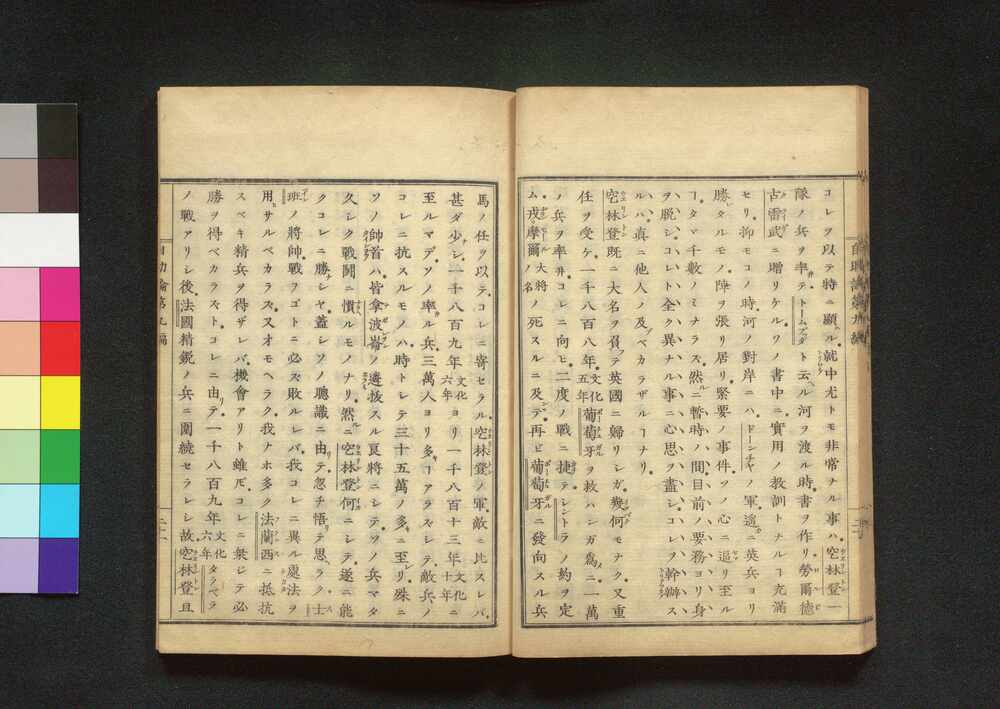 コレヲ以テ特ニ顯ル。就中尤トモ非常ナル事ハ。空林登一
隊ノ兵ヲ率テトームズダト云ヘル河ヲ渡ル時。書ヲ作リ勞爾德
古雷武ニ贈リケル。ソノ書中ニ實用ノ教訓トナルヿ充滿
セリ抑モコノ時。河ノ對岸ニハ。ドーンチヤノ軍。遙カニ英兵ヨリ
勝タルモノ。陣ヲ張リ居リ。緊要ノ事件。ソノ心ニ迫リ至ル
ヿタヾ千數ノミナラズ。然ルニ暫時ノ間。目前ノ要務ヨリ身
ヲ脱シ。コレト全ク異ナル事ニ心思ヲ盡シ。コレヲ幹辦ス
ルハ。眞ニ他人ノ及ブベカラザルヿナリ。
空林登既ニ大名ヲ負テ英國ニ歸リシガ。幾何モナク。又重
任ヲ受ケ。一千八百八年。文化五年葡萄牙ヲ救ハンガ爲ニ。一萬
ノ兵ヲ率井。コレニ向ヒ。二度ノ戰ニ捷テ。シントラノ約ヲ定
ム。戎摩爾大將ノ名ノ死スルニ及テ。再ビ葡萄牙ニ發向スル兵
馬ノ任ヲ以テ。コレニ寄セラル。空林登ノ軍。敵ニ比スレバ。
甚ダ少シ。一千八百九年文化六年ヨリ一千八百十三年文化十年ニ
至ルマデ。ソノ率ル兵三萬人ヨリ多キヿアラズシテ。敵兵ノ
コレニ抗スルモノハ。時トシテ三十五萬ノ多キニ至レリ。殊ニ
ソノ帥首ハ。皆拿波崙ノ遴拔スル良將ニシテ。ソノ兵マタ
久シク戰鬪ニ慣ルモノナリ。然ルニ空林登何ニシテ。遂ニ能
クコレニ勝シヤ。蓋シソノ聰識ニ由リテ。忽チ悟リテ思ヘラク。士
班ノ將帥。戰フゴトニ必ズ敗ルレバ。我コレニ異ル處法ヲ
用サルベカラズ。スオモヘラク。我ナホ多ク法蘭西ニ抵抗
スベキ精兵ヲ得ザレバ。機會アリト雖ドモ。コレニ乗ジテ必
勝ヲ得ベカラズト。コレニ由テ。一千八百九年文化六年タラベラ
ノ戰アリシ後。法國精鋭ノ兵ニ圍繞セラレシ故。空林登且
自助論第九編
二十一